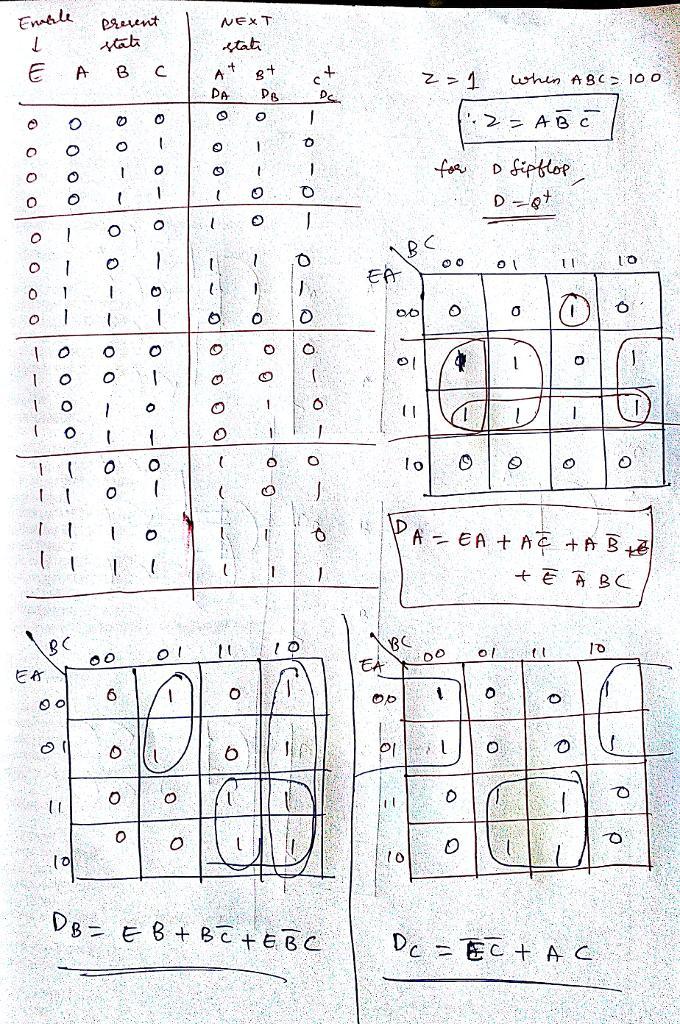 Enable Present state NEXT state
↓
E A B C A+ B+ C+
DA DB DC
0 0 0 0 0 0 1
0 0 0 1 0 1 0
0 0 1 0 0 1 1
0 0 1 1 1 0 0
0 1 0 0 1 0 1
0 1 0 1 1 1 0
0 1 1 0 1 1 1
0 1 1 1 0 0 0
1 0 0 0 0 0 0
1 0 0 1 0 0 1
1 0 1 0 0 1 0
1 0 1 1 0 1 1
1 1 0 0 1 0 0
1 1 0 1 1 0 1
1 1 1 0 1 1 0
1 1 1 1 1 1 1
Z = 1 when ABC = 100
∴ Z = A B̅ C̅
for D flipflop,
D = Q+
BC
EA 00 01 11 10
00 0 0 1 0
01 1 1 0 1
11 1 1 1 1
10 0 0 0 0
DA = EA + A C̅ + A B̅
+ E̅ A̅ BC
BC
EA 00 01 11 10
00 0 1 0 1
01 0 1 0 1
11 0 0 1 1
10 0 0 1 1
DB = E B + B C̅ + E B̅ C
BC
EA 00 01 11 10
00 1 0 0 1
01 1 0 0 1
11 0 1 1 0
10 0 1 1 0
DC = E̅ C̅ + A C